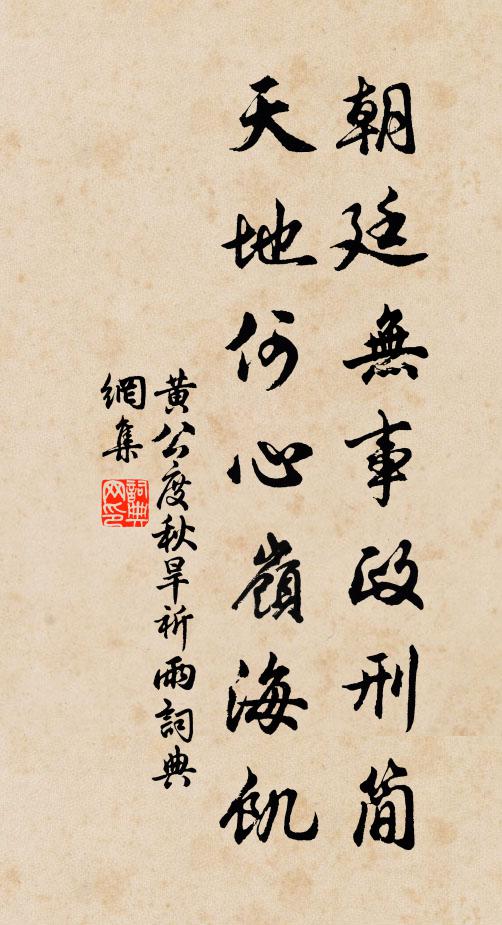 朝廷無事政刑簡
天地何心嶺海飢
黄公度秋旱祈雨詞典
網集
詞典網印